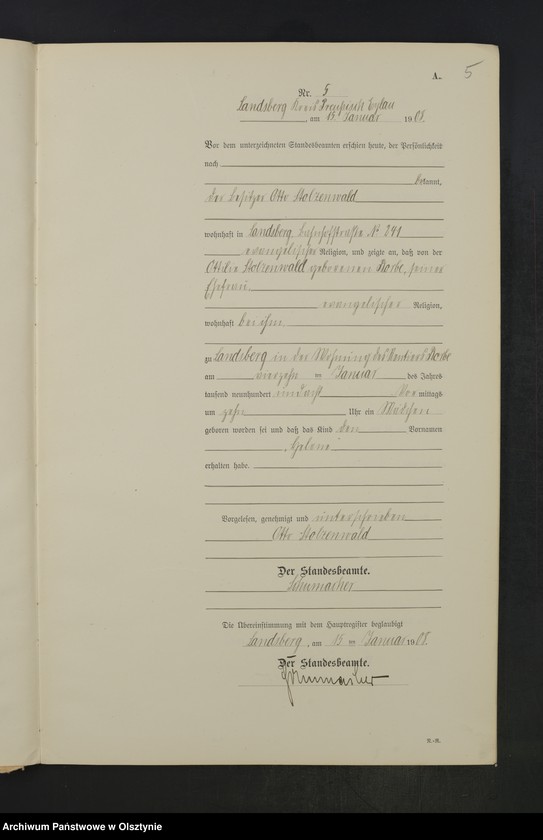 A.
5
Nr. 5
Landsberg Kreis Preußisch Eylau
, am 15 Januar 1908.
Vor dem unterzeichneten Standesbeamten erschien heute, der Persönlichkeit
nach
bekannt,
der Besitzer Otto Stolzenwald
wohnhaft in Landsberg, Bahnhofstraße No 241
evangelischer Religion, und zeigte an, daß von der
Ottilie Stolzenwald geborenen Barbe, seiner
Ehefrau
evangelischer Religion,
wohnhaft bei ihm
zu Landsberg in der Wohnung des Rentiers Barbe
am vierzehn ten Januar des Jahres
tausend neunhundert und acht Vor mittags
um zehn Uhr ein Mädchen
geboren worden sei und daß das Kind den Vornamen
erhalten habe.
Vorgelesen, genehmigt und unterschrieben
Otto Stolzenwald
Der Standesbeamte.
Schumacher
Die Übereinstimmung mit dem Hauptregister beglaubigt
Landsberg, am 15 ten Januar 1908.
Der Standesbeamte.
Schumacher
Archiwum Państwowe w Olsztynie